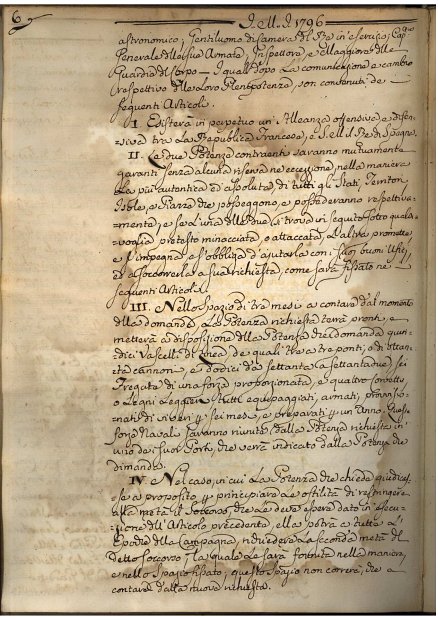 6
I.M.I. 1796
astronomico, Gentiluomo di Camera del Rè in esercizio, Cap.
Generale della sua Armata, Inspettore, e Maggiore delle
Guardia del Corpo — I quali dopo la comunicazione e cambio
respettivo delle Loro Plenipotenze, son convenuti de
sequenti Articoli.
I. Esisterà in perpetuo un' Alleanza offensiva, e difen-
siva trà La Republica Francese, e S. M. il Rè di Spagna.
II. Le due Potenze contraenti saranno mutuamente
garanti senza alcuna riserva ne eccezione, nella maniera
La più autentica ed assoluta, di tutti gli Stati, Territorj
Isole, e Piazze che posseggono, e possederanno respettiva-
mente; e se L'una delle due si trova in sequito sotto qualsi-
voglia pretesto minacciata, o attaccata, L'altra promette
s'impegna, e s'obbliga d'ajutarla con i suoi buoni Ufficj,
e di soccorrerla a sua richiesta, come sarà fissato ne'
sequenti Articoli.
III. Nello Spazio di tre mesi a contare dal momento
della domanda, La Potenza richiesta terrà pronti, e
metterà a disposizione della Potenza che domanda quin-
dici Vascelli di Linea de quali tre a tre ponti, o di ottan-
ta cannoni, e dodici da settanta a settantadue; sei
Fregate di una forza proporzionata, e quattro Corvette
o Legni Leggieri, tutti equipaggiati, armati, provvisio-
nati di viveri p. sei mesi, e preparati p. un Anno. Queste
forze Navali saranno riunite dalla Potenza richiesta in
uno de suoi Porti, che verrà indicato dalla Potenza che
dimanda.
IV. Nel caso, in cui La Potenza che chiede giudicas-
se a proposito p. principiare Le ostilità di restringere
alla metà il Soccorso che Le deve essere dato in esecu-
zione dell' Articolo precedente, ella potrà a tutte L'
Epoche della Campagna, richiedere La seconda metà del
detto soccorso; la quale Le sarà fornita nella maniera,
e nello Spazio fissato; questo Spazio non correrà, che a
contare dalla nuova richiesta.